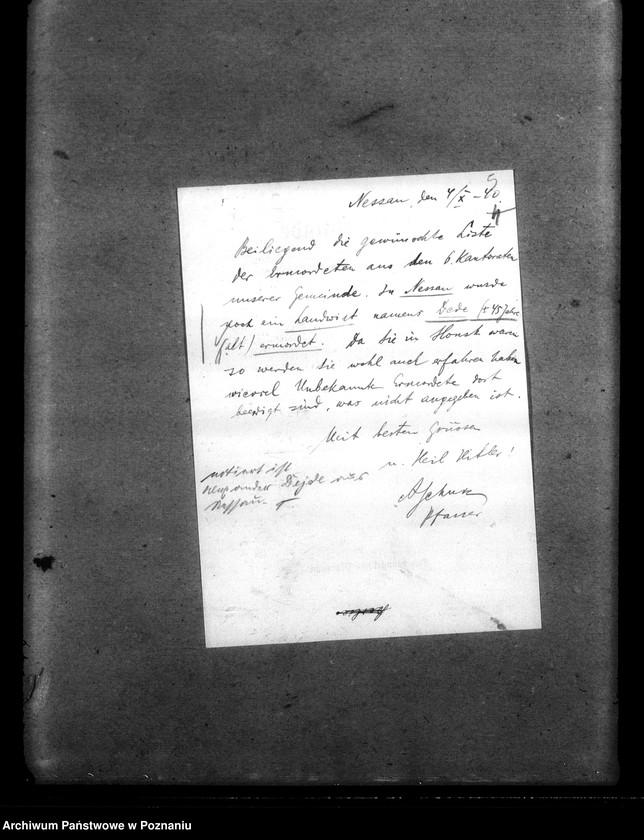 Nessau, den 4/X - 40.
Beiliegend die gewünschte Liste
der Ermordeten aus den 6. Kantoraten
unserer Gemeinde. In Nessau wurde
noch ein Landwirt namens Dede (± 45 Jahre
alt) ermordet. Da Sie in Slonsk waren
so werden Sie wohl auch erfahren haben
wieviel Unbekannte Ermordete dort
beerdigt sind, was nicht angegeben ist.
Mit besten Grüssen
u. Heil Hitler!
Pfarrer
notiert ist
aus
Nessau
Archiwum Państwowe w Poznaniu